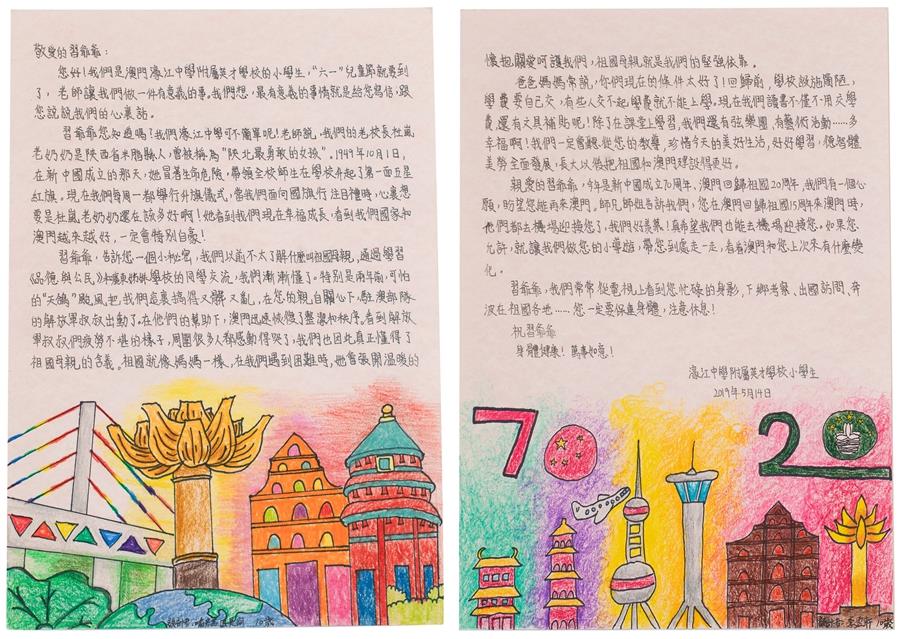 敬愛的習爺爺：
您好！我們是澳門濠江中學附屬英才學校的小學生，“六一”兒童節就要到
了，老師讓我們做一件有意義的事。我們想，最有意義的事情就是給您寫信，跟
您說說我們的心裏話。
習爺爺您知道嗎！我們濠江中學可不簡單呢！老師說，我們的老校長杜嵐
老奶奶是陝西省米脂縣人，曾被稱為“陝北最勇敢的女孩”。1949年10月1日，
在新中國成立的那天，她冒着生命危險，帶領全校師生在學校升起了第一面五星
紅旗。現在我們每周一都舉行升旗儀式，當我們面向國旗行注目禮時，心裏想
要是杜嵐老奶奶還在該多好啊！她看到我們現在幸福成長，看到我們國家和
澳門越來越好，一定會特別自豪！
習爺爺，告訴您一個小秘密，我們以前不太了解什麼叫祖國母親，通過學習
《品德與公民》和學校的同學交流，我們漸漸懂了。特別是兩年前，可怕
的“天鴿”颱風把我們這裏搞得又髒又亂，在您的親自關心下，駐澳部隊
的解放軍叔叔出動了。在他們的幫助下，澳門迅速恢復了整潔和秩序。看到解放
軍叔叔們疲勞不堪的樣子，周圍很多人都感動得哭了，我們也因此真正懂得了
祖國母親的含義。祖國就像媽媽一樣，在我們遇到困難時，她會張開溫暖的
懷抱，關愛呵護我們，祖國母親就是我們的堅強依靠。
爸爸媽媽常說，你們現在的條件太好了！回歸前，學校設施簡陋，
學費要自己交，有些人交不起學費就不能上學。現在我們讀書不僅不用交學
費，還有文具補貼呢！除了在課堂上學習，我們還有弦樂團，有藝術活動……多
幸福啊！我們一定會聽從您的教導，珍惜今天的美好生活，好好學習，德智體
美勞全面發展，長大以後把祖國和澳門建設得更好。
親愛的習爺爺，今年是新中國成立70周年、澳門回歸祖國20周年，我們有一個心
願，盼望您能再來澳門。師兄師姐告訴我們，您在澳門回歸祖國15周年來澳門時，
他們都去機場迎接您了，我們好羨慕！真希望我們也能去機場迎接您。如果您
允許，就讓我們做您的小導遊，帶您到處走一走，看看澳門和您上次來有什麼變
化。
習爺爺，我們常常從電視上看到您忙碌的身影，下鄉考察、出國訪問、奔
波在祖國各地……您一定要保重身體，注意休息！
祝習爺爺
身體健康！萬事如意！
濠江中學附屬英才學校小學生
2019年5月14日
70
20
10歲
10歲